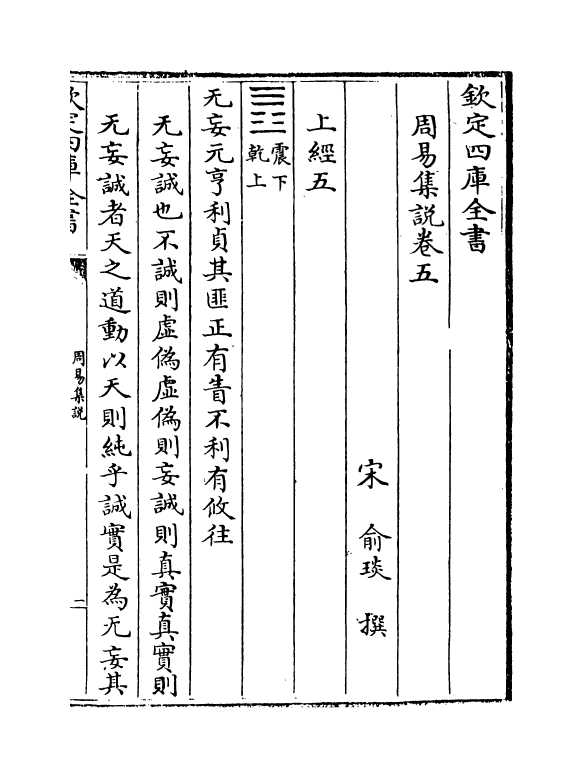 欽定四庫全書
周易集說卷五
宋 俞琰 撰
上經五
䷘震下乾上
无妄元亨利貞其匪正有眚不利有攸往
无妄誠也不誠則虛偽虛偽則妄誠則真實真實則
无妄誠者天之道動以天則純乎誠實是為无妄其
欽定四庫全書
周易集說